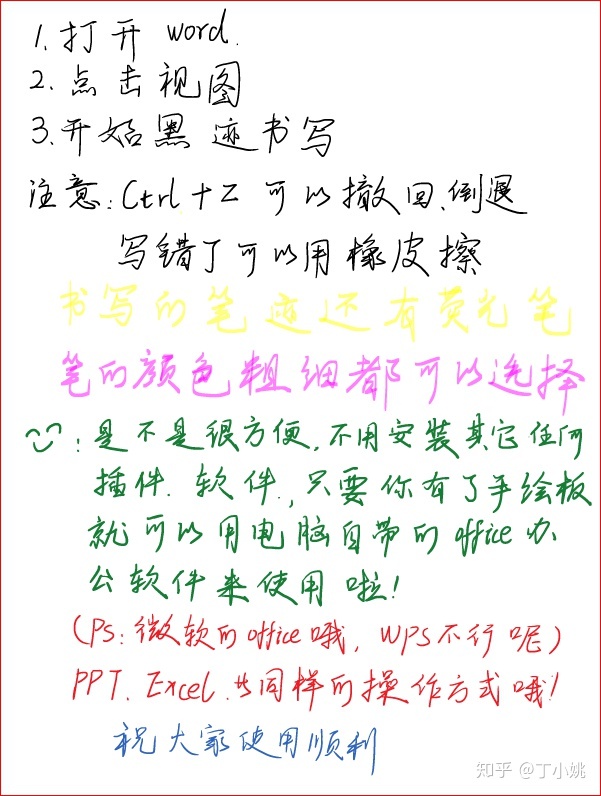 1.打开 word.
2.点击视图
3.开始黑迹书写
注意:Ctrl+Z 可以撤回、倒退
写错了可以用橡皮擦
书写的笔迹还有荧光笔
笔的颜色粗细都可以选择
:是不是很方便,不用安装其它任何
插件.软件,只要你有了手绘板
就可以用电脑自带的office办
公软件来使用啦!
(PS:微软的office哦,WPS不行呢)
PPT.Excel.也同样的操作方式哦!
祝大家使用顺利
知乎 @丁小姚